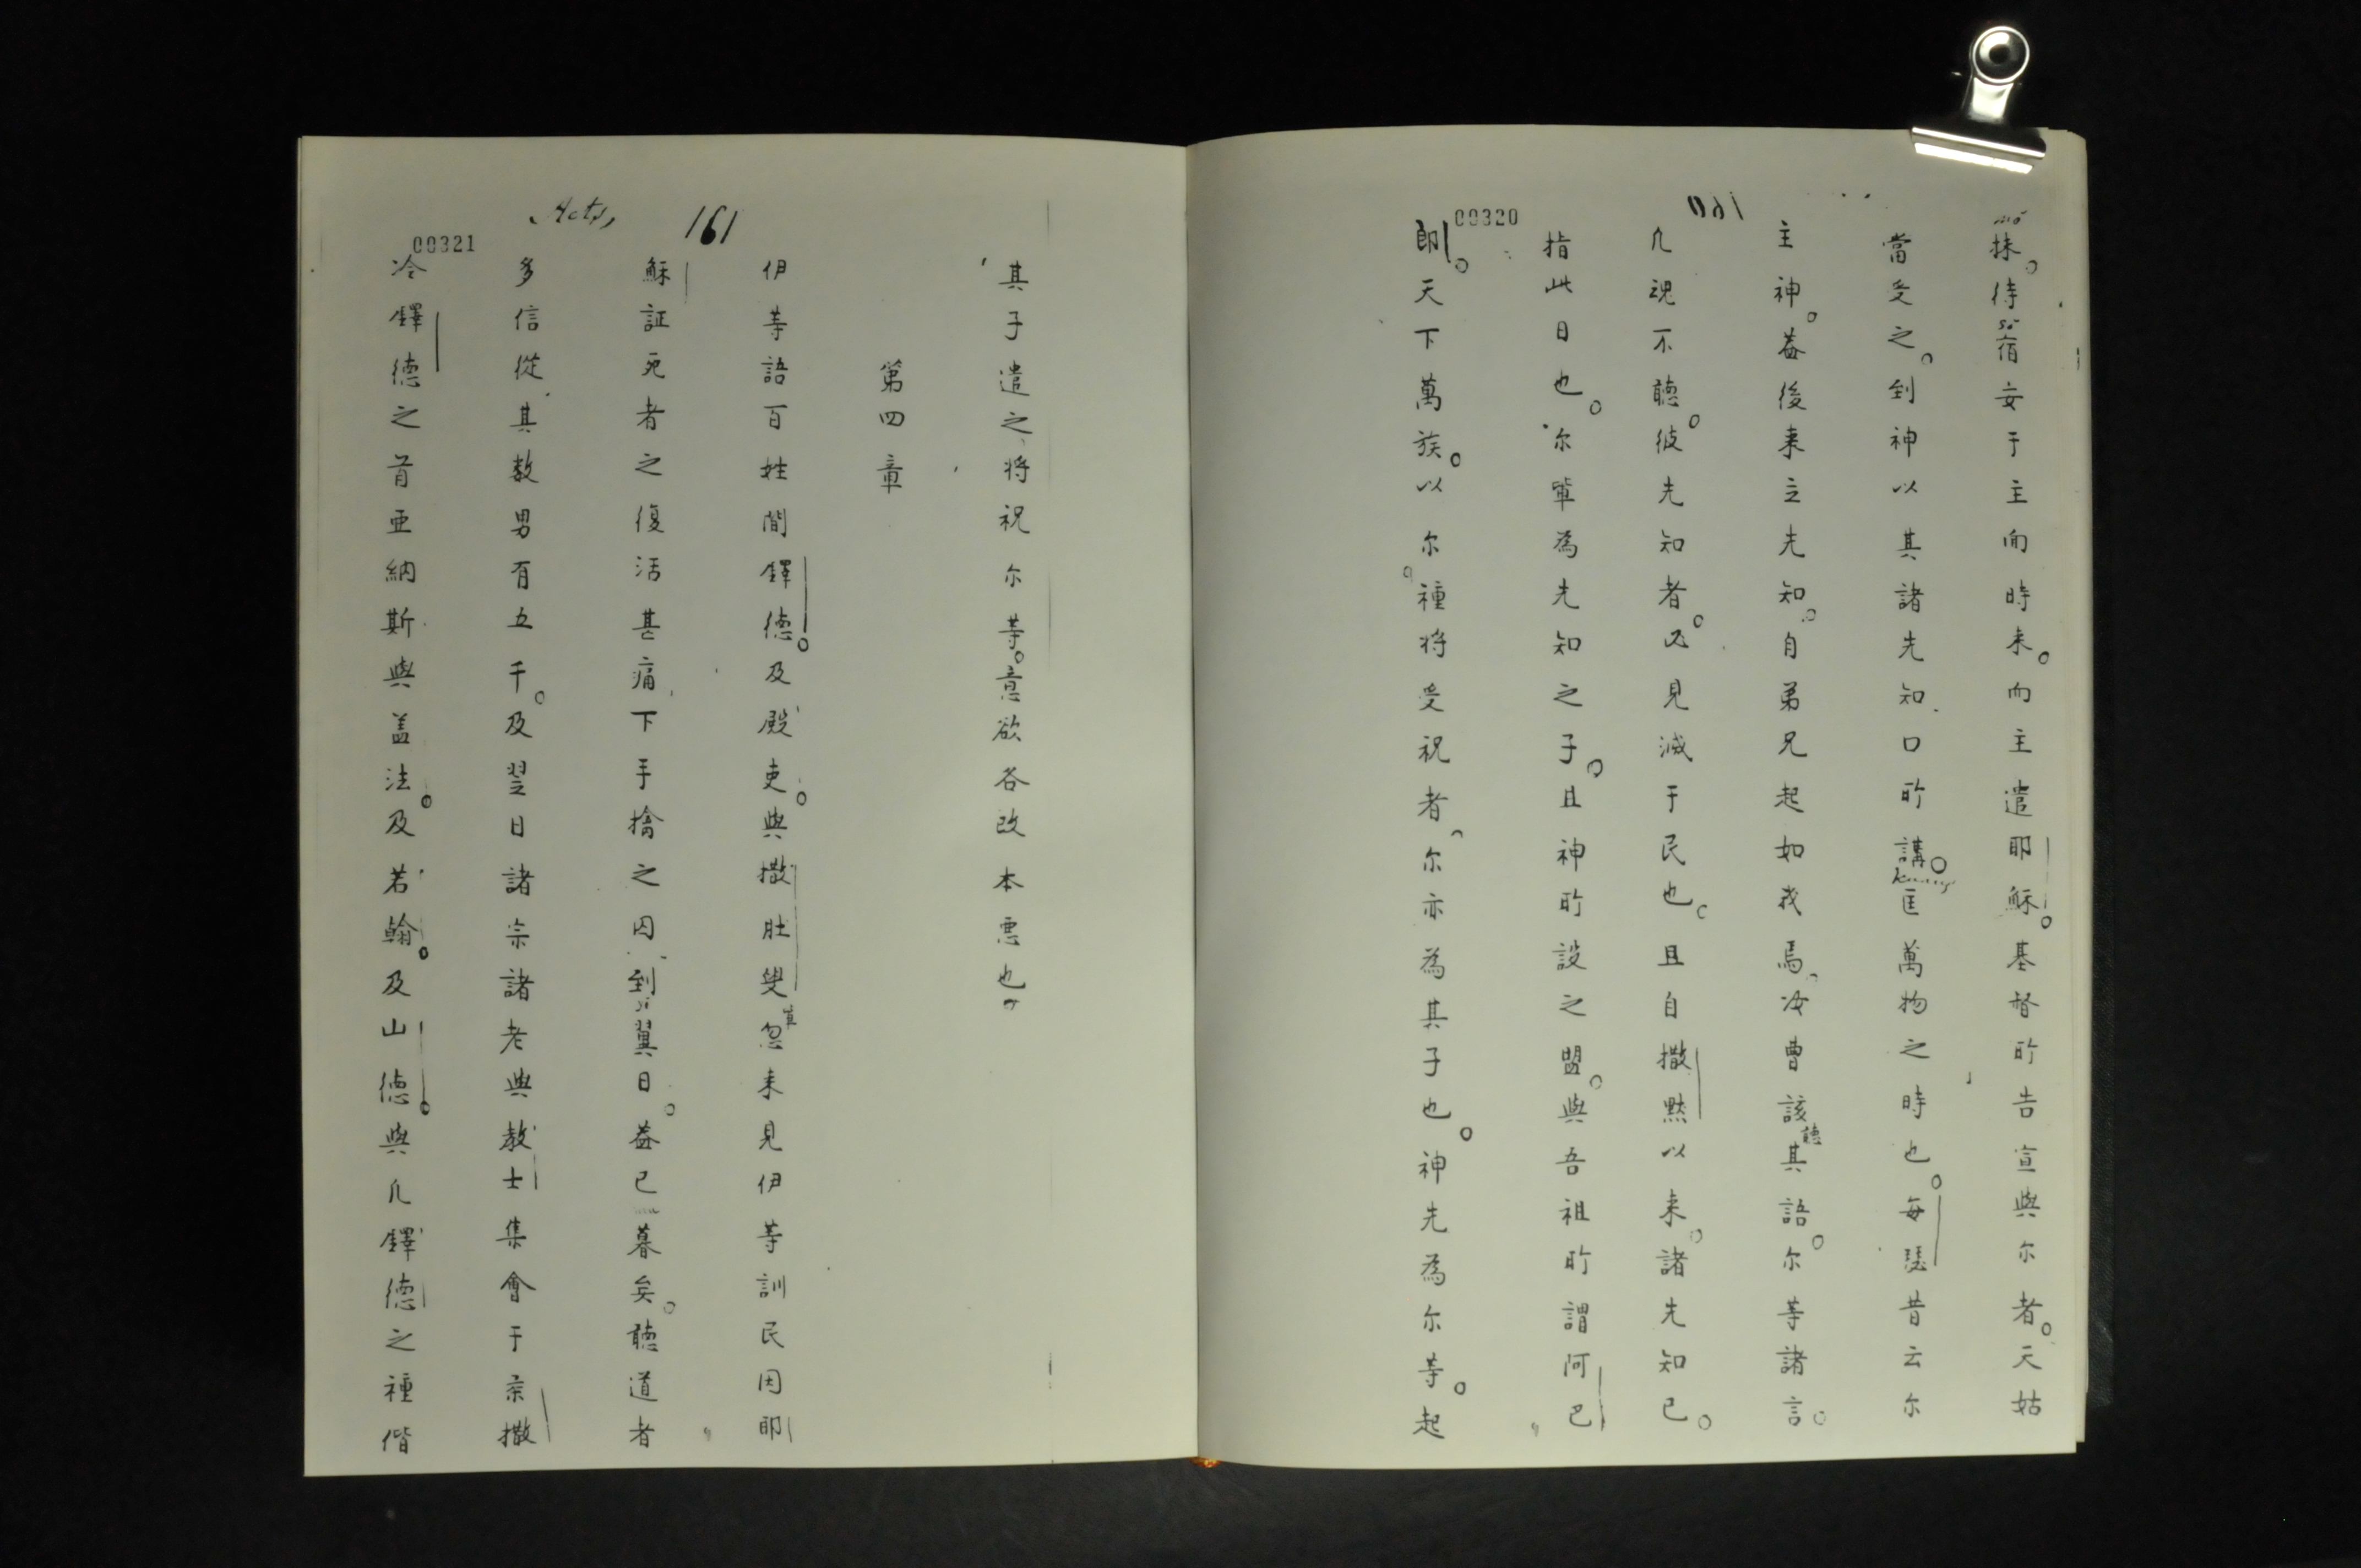 00320
160
抹。待宿妄于主面時来。而主遣耶穌。基督所告宣與尔者。天姑
當受之。到神以其諸先知口所講。匡萬物之時也。每瑟昔云尔
主神。葢後来立先知。自弟兄起如我焉。汝曹該聽其語。尔等諸言。
凡魂不聽。彼先知者。必見滅于民也。且自撒黙以来。諸先知已。
指此日也。尔軰為先知之子。且神所設之盟。與吾祖所謂阿巴
郎。天下萬族。以尔種将受祝者。尔亦為其子也。神先為尔等。起
Acts, 161
00321
其子遣之将祝尔等。意欲各改本悪也。
第四章
伊等語百姓間鐸德。及殿吏。與撒肚叟忽来見伊等訓民因耶
穌証死者之復活甚痛下手擒之囚到翼日。葢已暮矣。聴道者
多信從其数男有五千。及翌日諸宗諸老與教士集會于柰撒
冷鐸德之首亜納斯與盖法。及若翰。及山德。與凡鐸德之種偕